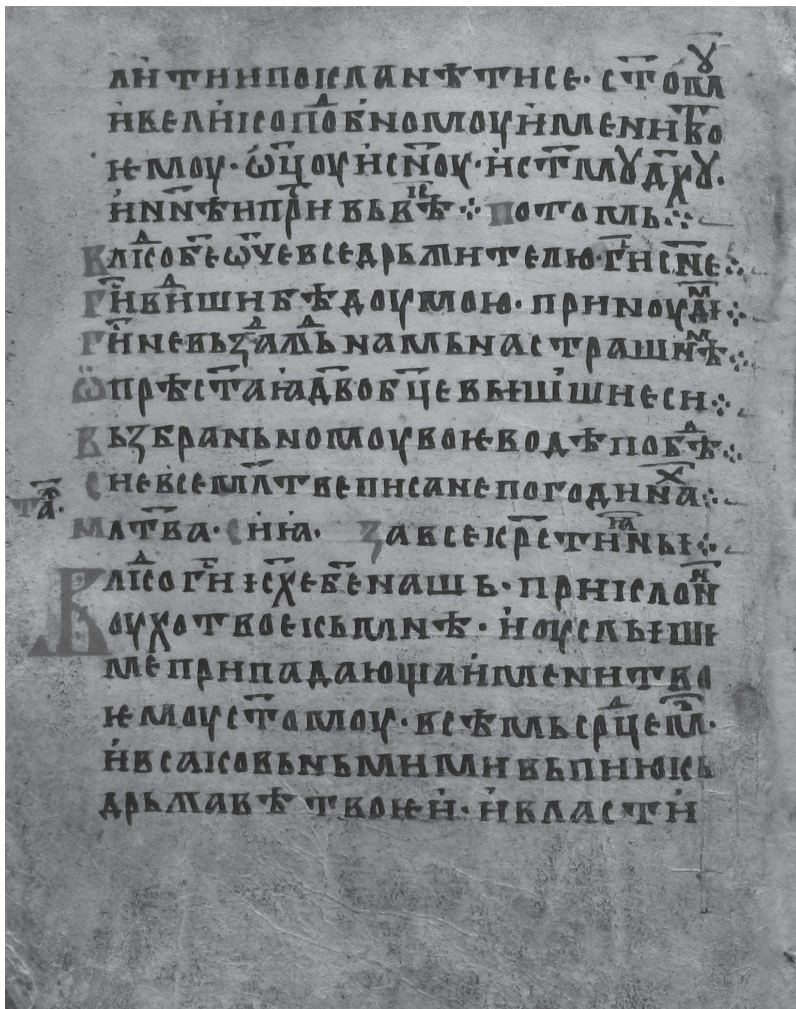 лити и покланѣти се· ст҃ омꙋ
и велик подⷪ҇бномоу имени тво
ѥмоу· ѡ҃цоу и сн҃оу· и ст҃мꙋ дх҃ꙋ·
и нн҃ѣ и прⷭ҇и въ вѣкⷦ҇ ⁘ потомь⁘
влⷣко бе҃ ѡ҃че вседрьжителю· г҃и сн҃е⁘
г҃и видⷣши бѣдоу мою· приноудиⷨ⁘
г҃и не вьздⷣажⷣь намь на страшнѣⷨ⁘
ѿ прѣст҃аꙗ дв҃о бц҃е вышьшни еси⁘
вьзбраньномоу воѥводѣ побѣⷣ⁘
сие все мл҃тве писане по годинаⷯ⁘
та҃·
мл҃тва· сиꙗ· за все крⷭ҇тиꙗны⁘
влⷣко г҃и іс҃ х҃е бж҃е нашь· приклониⷩ
оухо твое кь мнѣ· и оуслыши
ме припадающа имени тво
ѥмоу ст҃омоу· всѣмь срⷣцемь·
и всако вьньми ми вьпиюкь
дрьжавѣ твоѥи· и власти